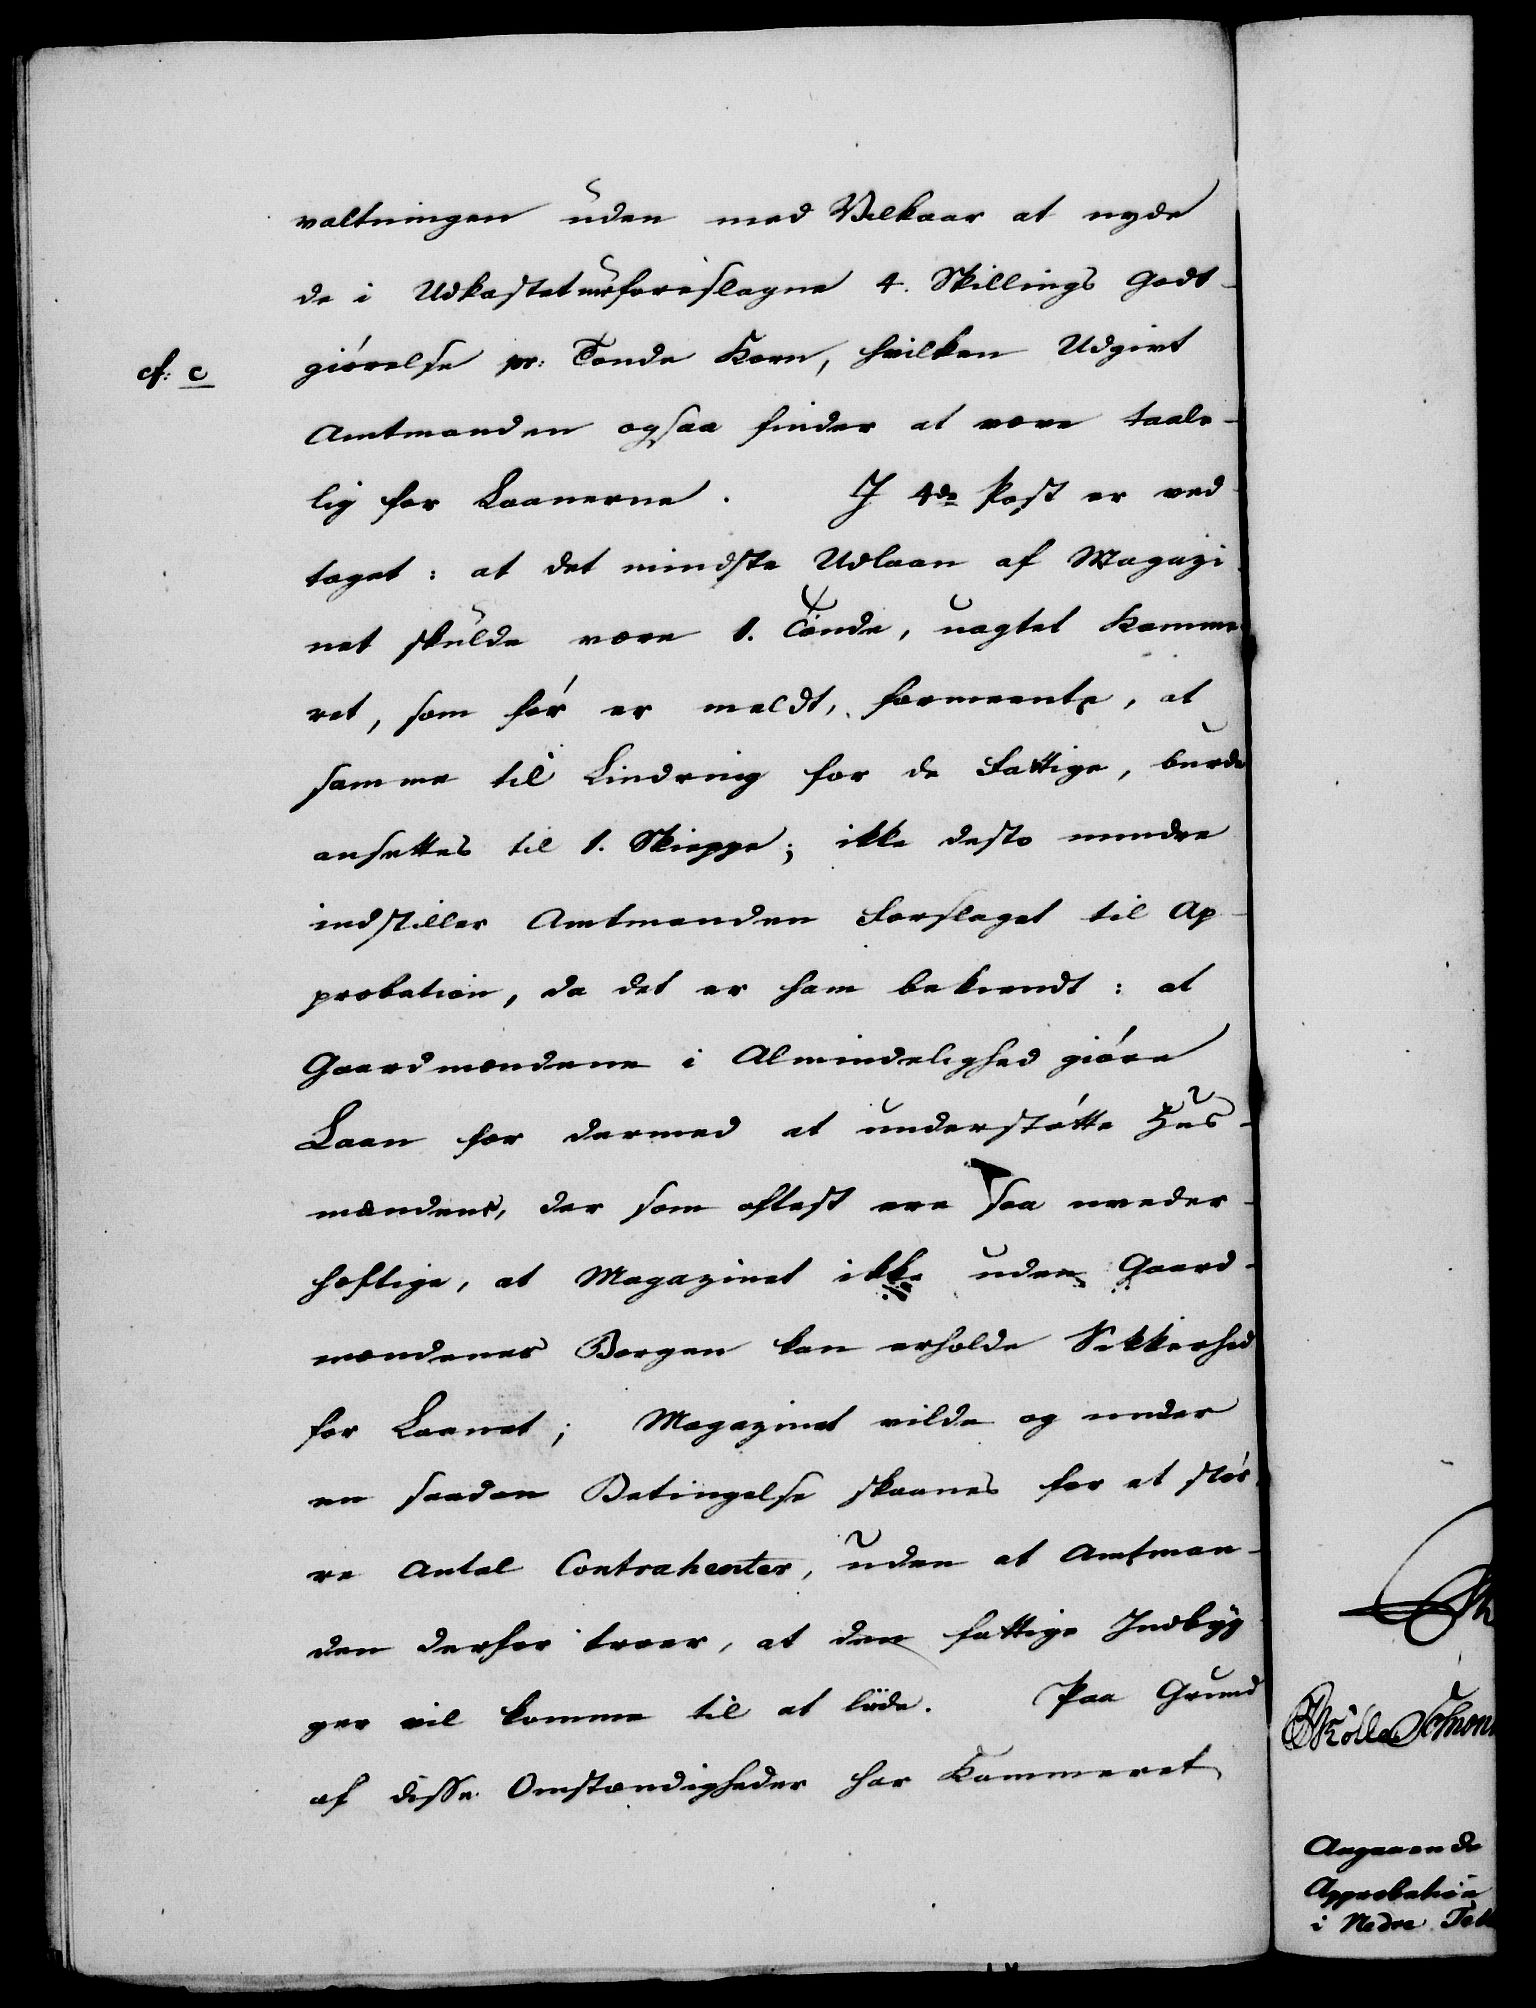 valtningen uden med Vilkaar at nyde
de i Udkastet foreslagne 4. Skillings Godt-
cf: c
giörelse pr: Tønde Korn, hvilken Udgivt
Amtmanden ogsaa finder at være taale-
lig for Laanerne. I 4de Post er ved
taget: at det mindste Udlaan af Magazi
net skulde være 1. Tønde, uagtet Kamme
ret, som før er meldt, formeente, at
samme til Lindring for de Fattige, burde
ansættes til 1. Skieppe; ikke desto mindre
indstiller Amtmanden Forslaget til Ap-
probation, da det er ham bekiendt: at
Gaardmændene i Almindelighed giöre
Laan for dermed at understøtte Huus-
mændene, der som oftest ere saa uveder-
hæftige, at Magazinet ikke uden Gaard-
mændenes Borgen kan erholde Sikkerhed
for Laanet; Magazinet vilde og under
en saadan Betingelse skaanes for et stør
re Antal Contrahenter, uden at Amtman-
den derfor troer, at den fattige Indbyg
ger vil komme til at liide. Paa Grund
af disse Omstændigheder har Kammeret
Angaaende
Approbation
i Nedre